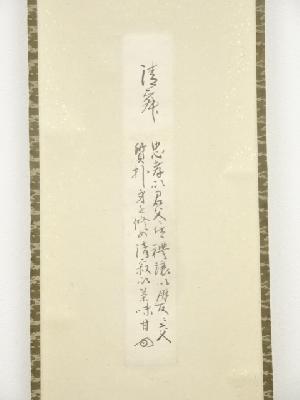 清寂
忠孝以君父仕禮讓以朋友交
質朴身を修め清寂以茶味甘